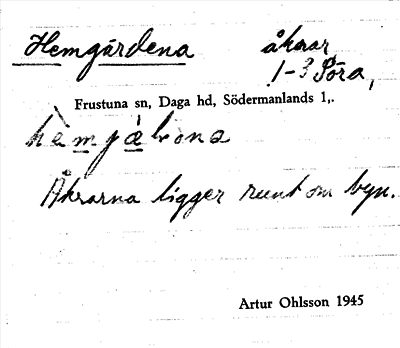 Hemgärdena åkrar,
1-3 Söra,
Frustuna sn, Daga hd, Södermanlands l,.
Åkrarna ligger runt om byn.
Artur Ohlsson 1945